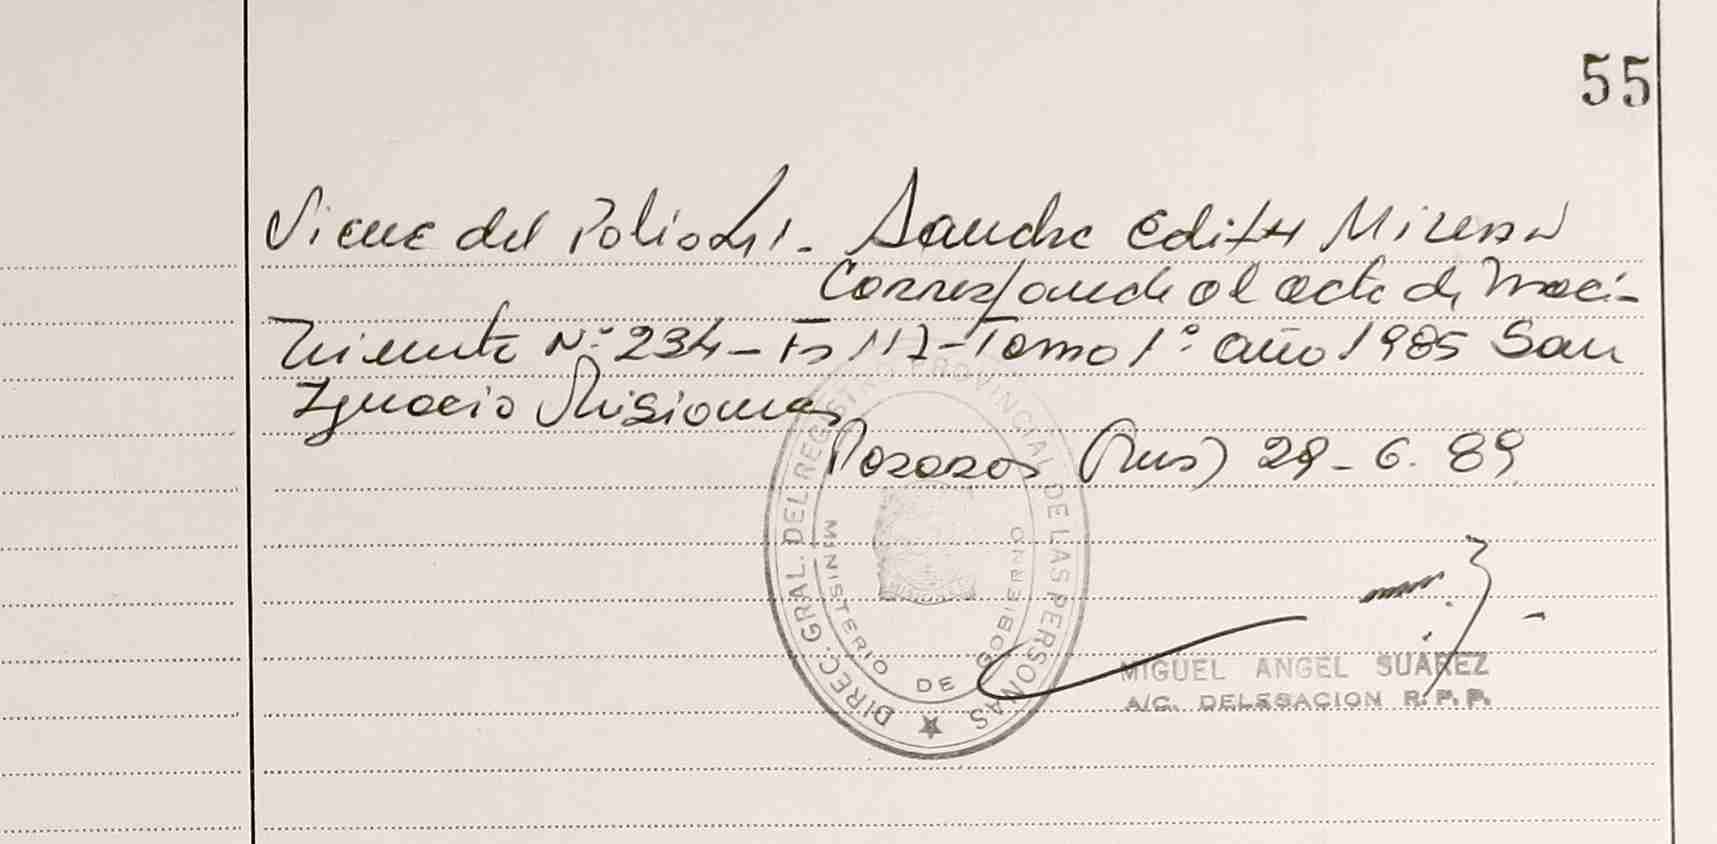 55
Viene del Folio 41.- Sandra Edith
Corresponde al acta de Naci-
miento Nº 234 - Fº 117 - Tomo 1º año 1985 San
Ignacio Misiones
Posadas (Mns) 29-6.89
DIREC. GRAL. DEL REGISTRO PROVINCIAL DE LAS PERSONAS
MINISTERIO DE GOBIERNO
MIGUEL ANGEL SUAREZ
A/C. DELEGACION R.P.P.